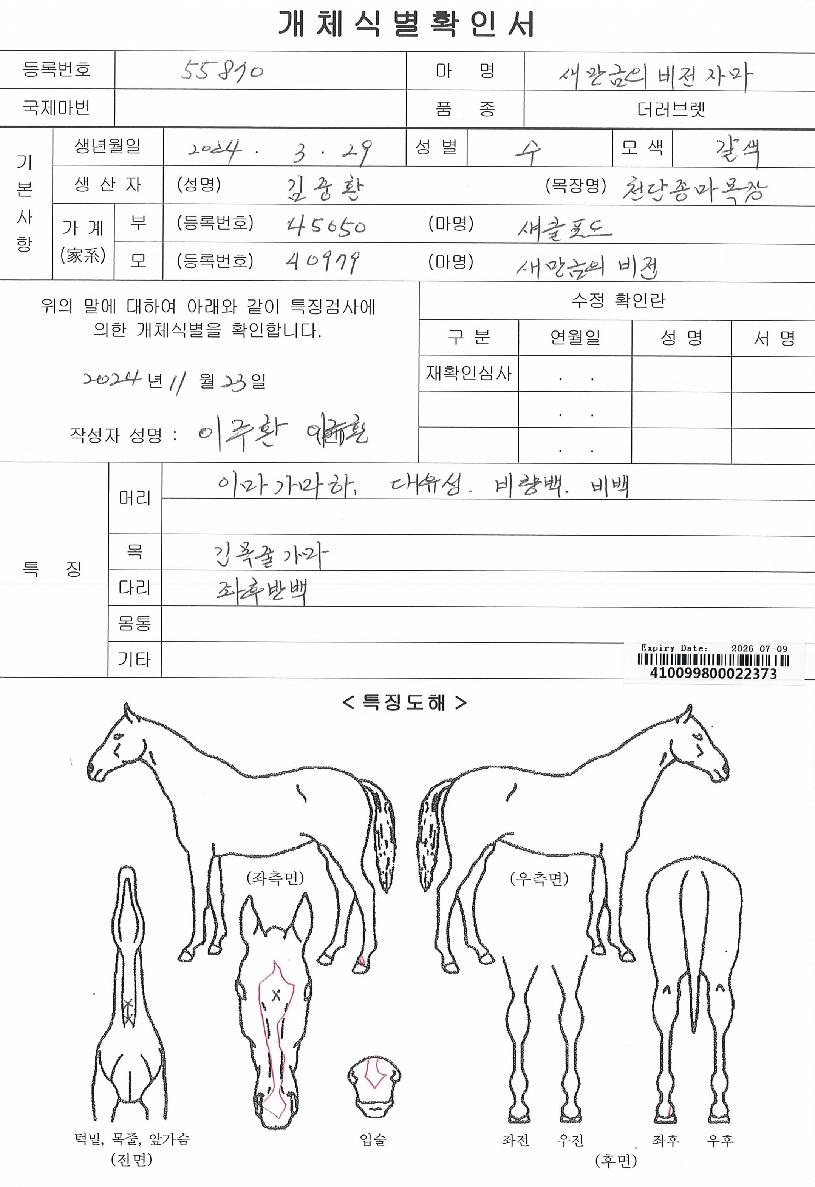 개체식별확인서
등록번호 55890 마 명 새만금의 비전자마
국제마번 품 종 더러브렛
기본사항
생년월일 2024 . 3 . 29 성 별 수 모 색 갈색
생 산 자 (성명) 김중환 (목장명) 천단종마목장
가 계 (家系) 부 (등록번호) 45050 (마명) 섀클포드
모 (등록번호) 40979 (마명) 새만금의 비전
위의 말에 대하여 아래와 같이 특징검사에
의한 개체식별을 확인합니다.
2024 년 11 월 23 일
작성자 성명 : 이주환
수정 확인란
구 분 연월일 성 명 서 명
재확인심사 . .
. .
. .
특 징
머리 이마가마하. 대유성. 비량백. 비백
목 긴목줄가마
다리 좌후반백
몸통
기타
Expiry Date: 2026 07 09
410099800022373
< 특징도해 >
(좌측면) (우측면)
턱밑, 목줄, 앞가슴
(전면)
입술
좌전 우전 좌후 우후
(후면)